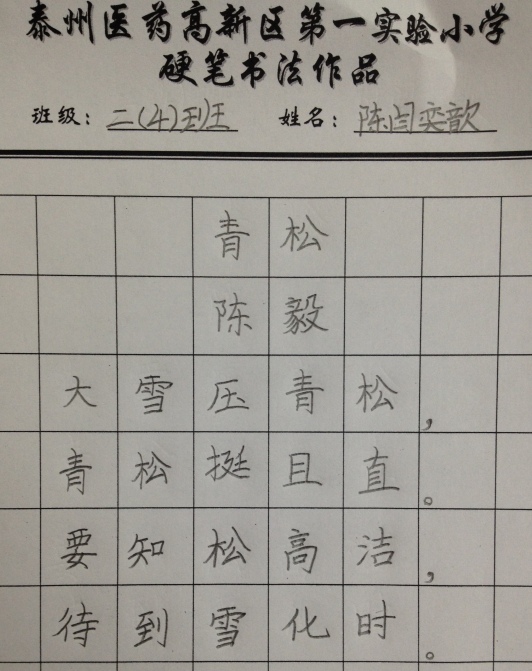 泰州医药高新区第一实验小学
硬笔书法作品
班级：二(4)班 姓名：陈闫奕歆
青松
陈毅
大雪压青松，
青松挺且直。
要知松高洁，
待到雪化时。